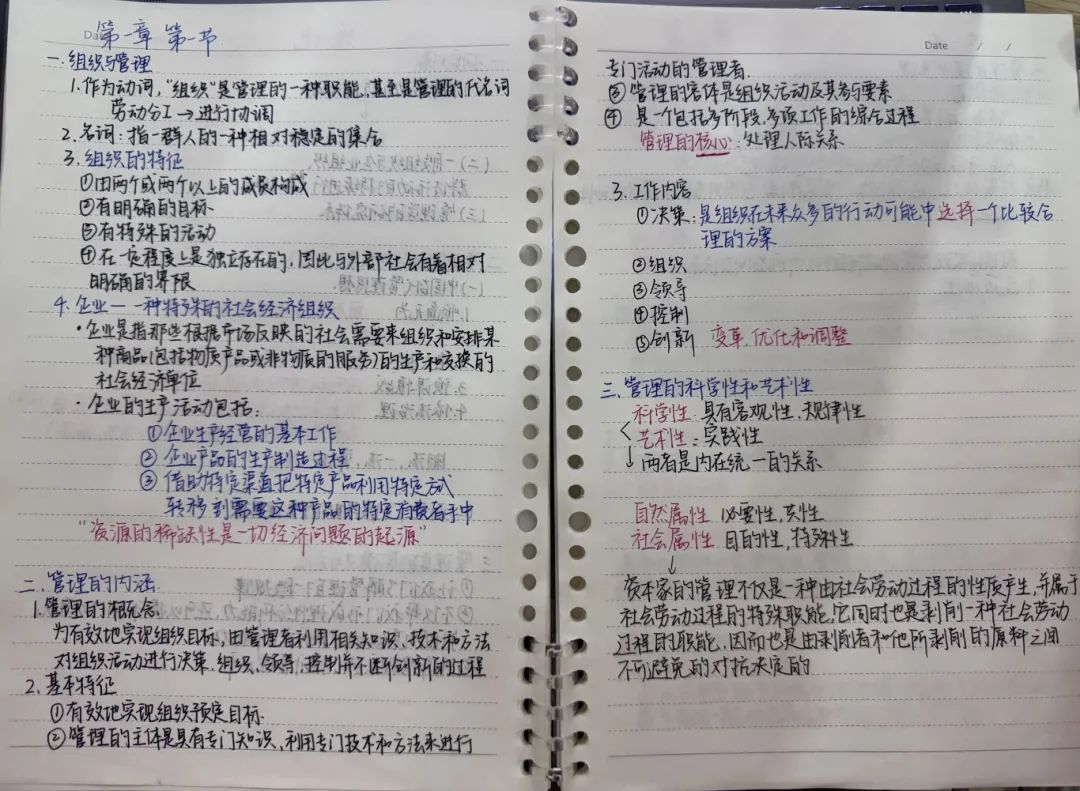 第一章 第一节
一.组织与管理
1.作为动词,"组织"是管理的一种职能,甚至是管理的代名词
劳动分工→进行协调
2.名词:指一群人的一种相对稳定的集合
3.组织的特征
①由两个或两个以上的成员构成
②有明确的目标
③有特殊的活动
④在一定程度上是独立存在的,因此与外部社会有着相对
明确的界限
4.企业——一种特殊的社会经济组织
·企业是指那些根据市场反映的社会需要来组织和安排某
种商品(包括物质产品或非物质的服务)的生产和交换的
社会经济单位
·企业的生产活动包括:
①企业生产经营的基本工作
②企业产品的生产制造过程
③借助特定渠道把特定产品利用特定方式
转移到需要这种产品的特定消费者手中
"资源的稀缺性是一切经济问题的起源"
二.管理的内涵
1.管理的概念
为有效地实现组织目标,由管理者利用相关知识、技术和方法
对组织活动进行决策、组织、领导、控制并不断创新的过程
2.基本特征
①有效地实现组织预定目标
②管理的主体是具有专门知识,利用专门技术和方法来进行
Date / /
专门活动的管理者.
③管理的客体是组织活动及其参与要素
④是一个包括多阶段、多项工作的综合过程
管理的核心:处理人际关系
3.工作内容
①决策:是组织在未来众多的行动可能中选择一个比较合
理的方案
②组织
③领导
④控制
⑤创新 变革、优化和调整
三.管理的科学性和艺术性
科学性:具有客观性、规律性
艺术性:实践性
↓两者是内在统一的关系
自然属性 必要性,共性
社会属性 目的性,特殊性
↓
资本家的管理不仅是一种由社会劳动过程的性质产生,并属于
社会劳动过程的特殊职能,它同时也是剥削一种社会劳动
过程的职能,因而也是由剥削者和他所剥削的原料之间
不可避免的对抗决定的